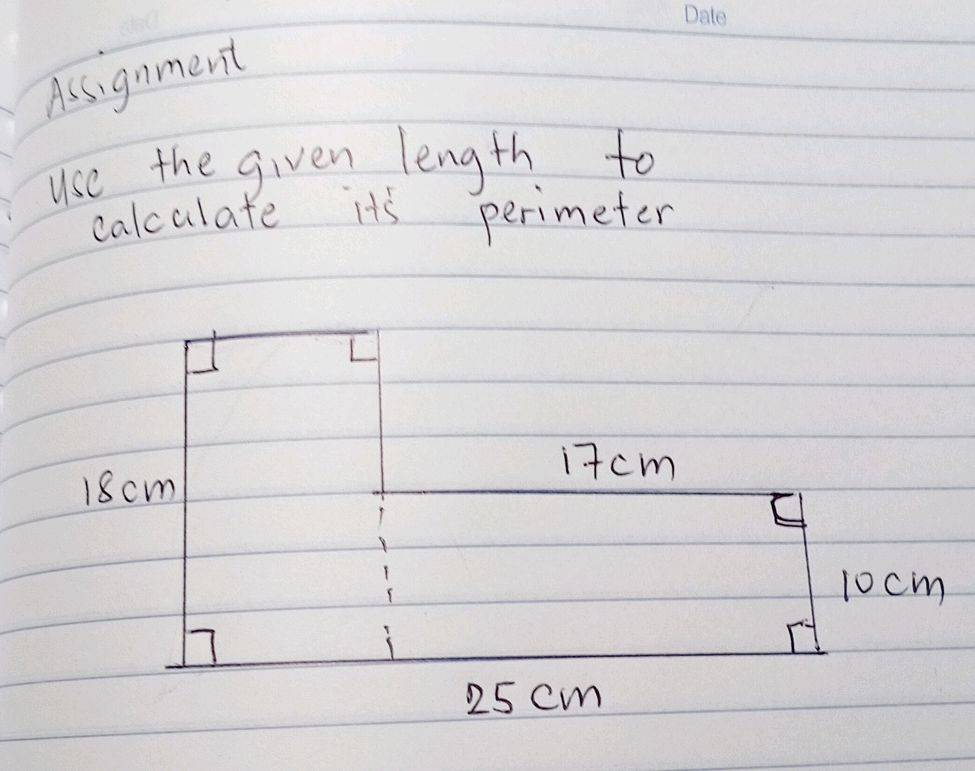 Date
Assignment
use the given length to
calculate its perimeter
17cm
18cm
10cm
25 cm